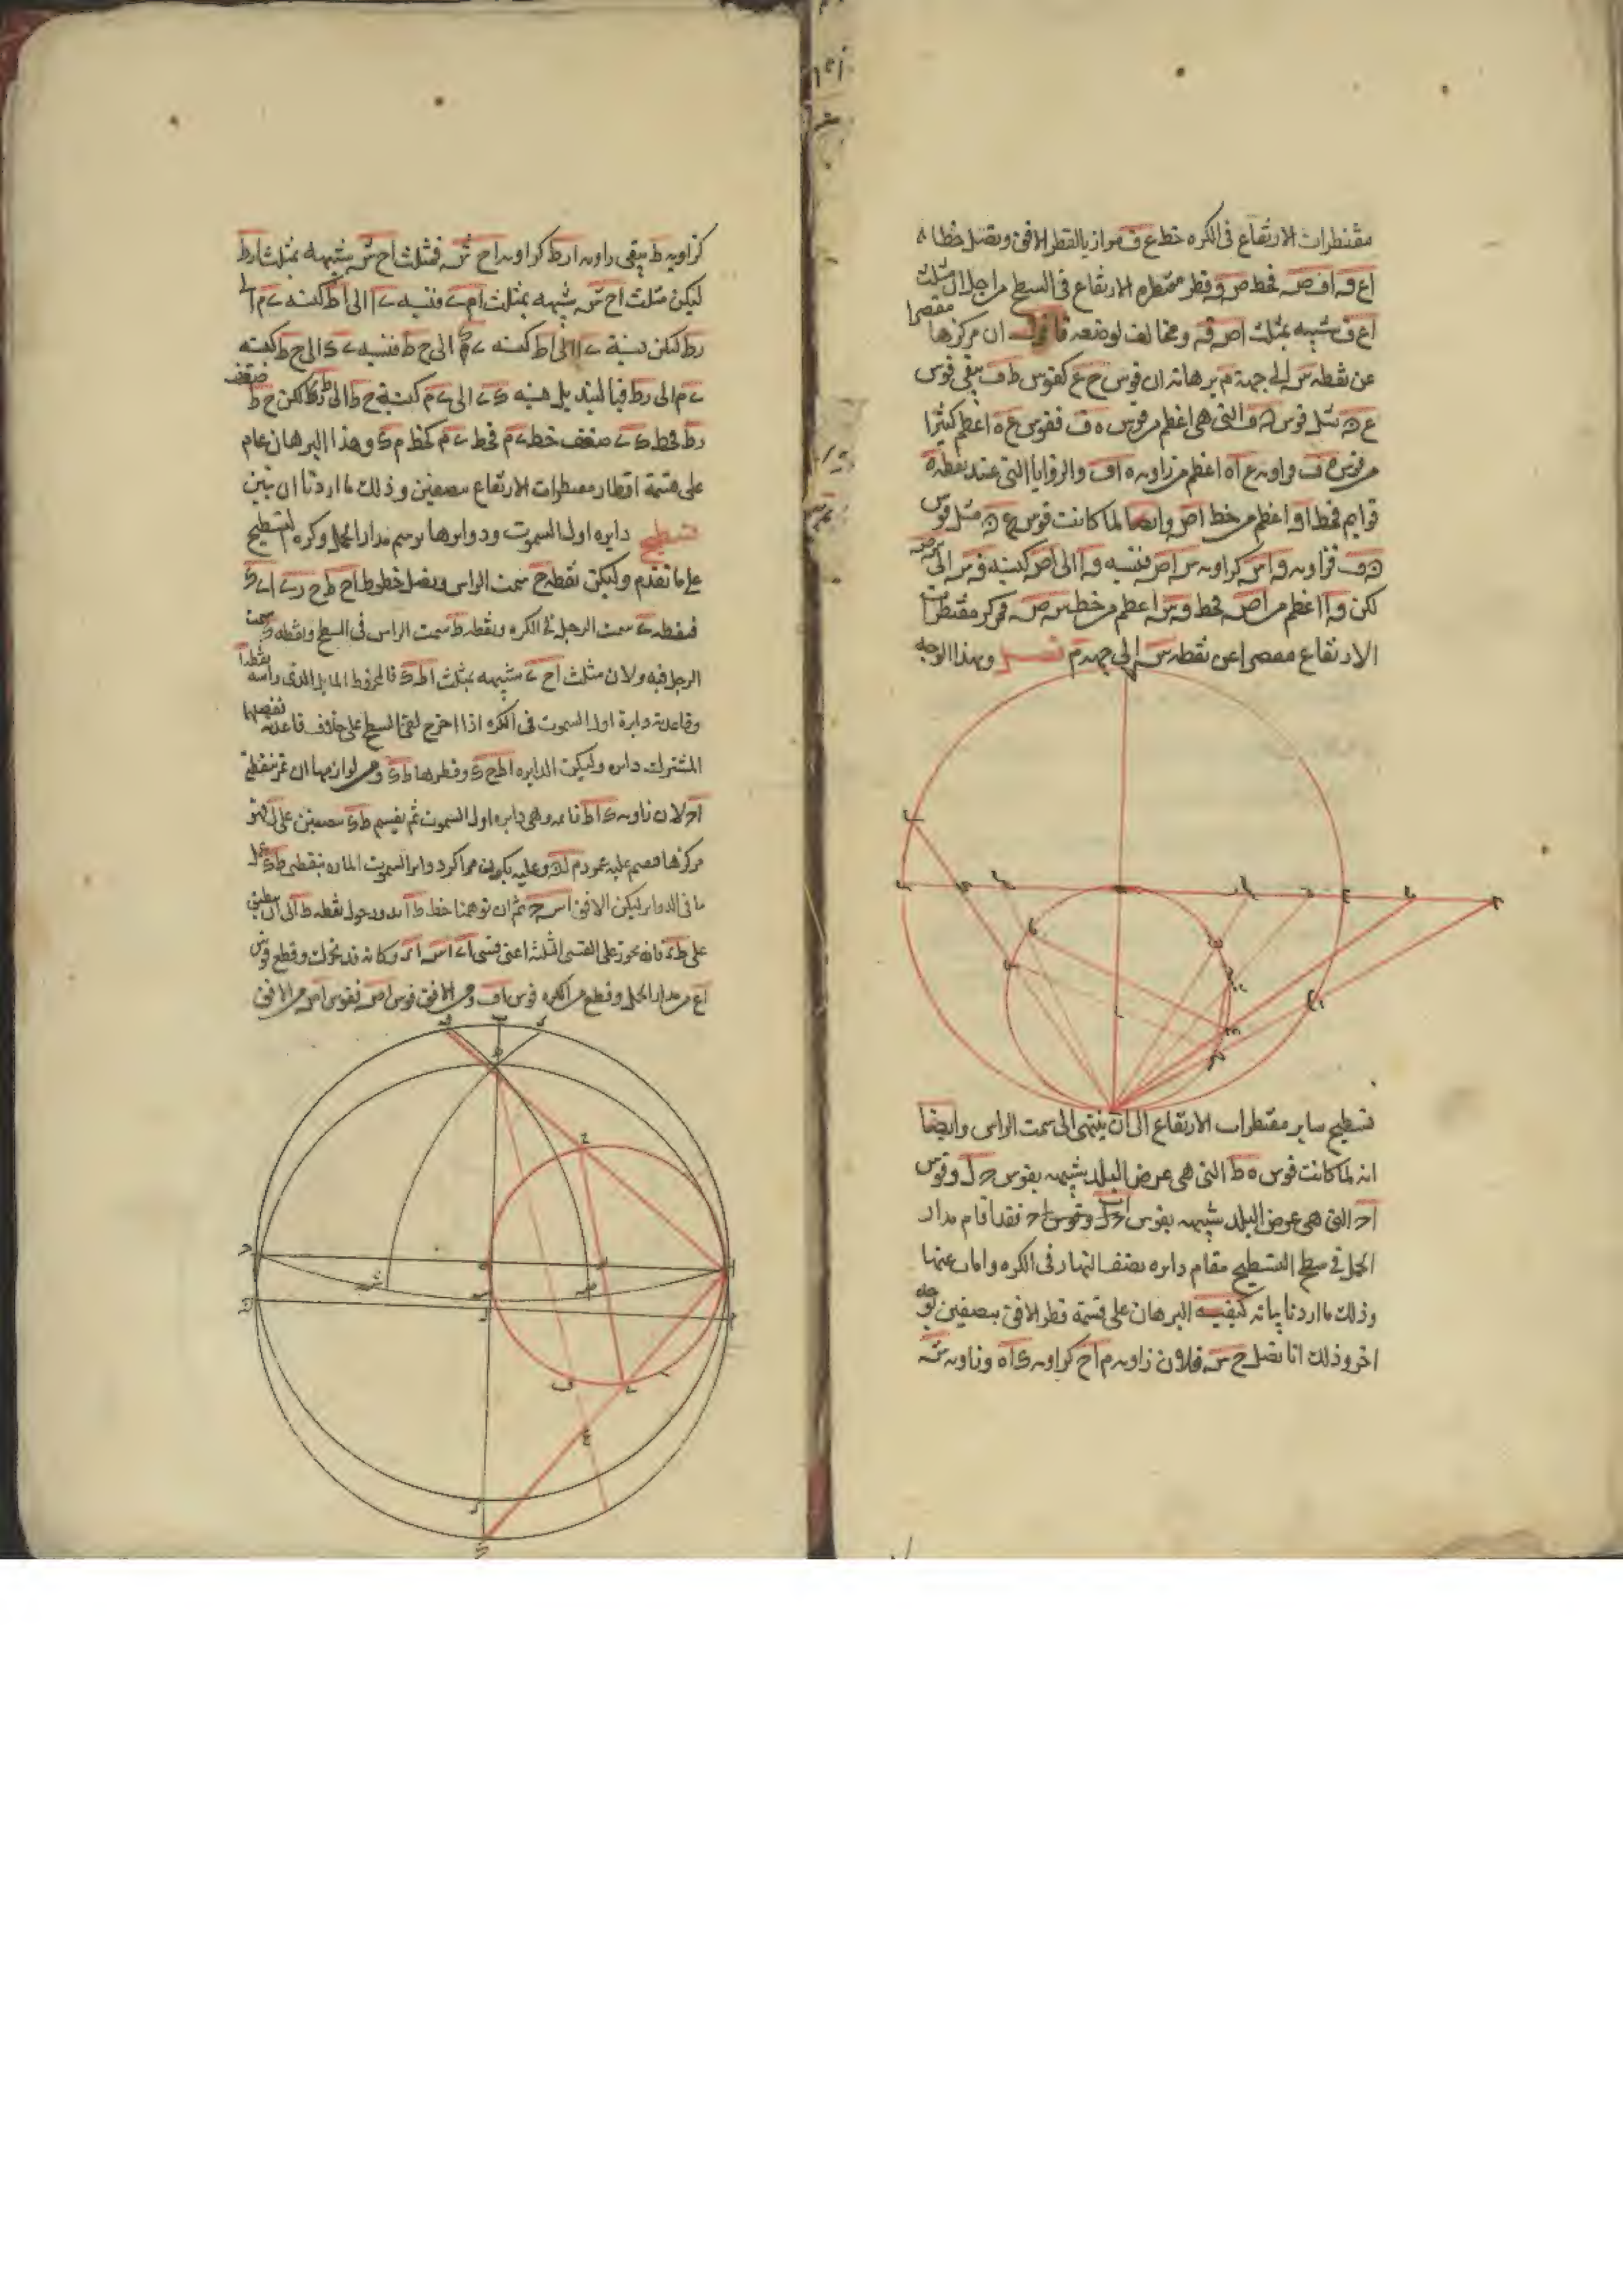 مقنطرات الارتفاع فى الكره خط ع ف مواز يالقطر الافق ونصل خطا
اع و اف ص فخط ص و قطر مقنطره الارتفاع فى السطح من اجل ان مثلث
اع ف شبيه بمثلث اص ق ومخالف لوضعه فاقول ان مركزها مقصرا
عن نقطه س الى جهة م برهانه ان قوس ح ع كقوس ط ف يبقى قوس
ع ن مثل قوس ن ف التى هى اعظم من قوس ه ف فقوس ع ه اعظم كثيرا
من قوس ه ف وزاويه ع اه اعظم من زاويه ه اف والزوايا التى عند نقطه ه
قوايم فخط او اعظم من خط اص وايضا لما كانت قوس ع ن مثل قوس
ن ف فزاويه و اس كزاويه س اص فنسبه و ا الى اص كنسبه و س الى س ص
لكن و ا اعظم من اص فخط و س اعظم من خط س ص فمركز مقنطرات
الارتفاع مقصرا عن نقطه س الى جهه م وبهذا الوجه
تسطيح ساير مقنطرات الارتفاع الى ان ينتهى الى سمت الراس وايضا
انه لما كانت قوس ه ط التى هى عرض البلد شبيهه بقوس ح ل وقوس
اح التى هى عرض البلد شبيهه بقوس فقد اقام مدار
الحمل فى سطح التسطيح مقام دايره نصف النهار فى الكره واماب عنها
وذلك ما اردنا بيانه كيفيه البرهان على قسمة قطر الافق بنصفين لوجه
اخر وذلك انا نصل ح س فلان زاويه م اح كزاويه ك اه وزاويه س
كزاويه ط يبقى زاويه ارط كزاويه اح س فمثلث اح س شبيهه بمثلث ارط
ليكن مثلث اح س شبيهه بمثلث ام ى فنسبه ى ا الى اط كنسبه ى م الى
رط لكن نسبة ى ا الى اط كنسبه ى ك الى ح ط فنسبه ى ك الى ح ط كنسبه
ى م الى رط فبالتبديل نسبه ك ى الى ى م كنسبة ح ط الى ط ر لكن ح ط ضعف
رط فخط ك ى ضعف خط ى م فخط ى م كخط م ك وهذا البرهان عام
على قسمة اقطار مقنطرات الارتفاع بنصفين وذلك ما اردنا ان نبين
تسطيح دايره اول السموت ودوايرها نرسم مدار الحمل وكره التسطيح
على ما تقدم وليكن نقطه ح سمت الراس ونصل خطوط اح ط ح ى ا ى ك
فنقطه ى سمت الرجل فى الكره ونقطه ط سمت الراس فى السطح ونقطه ك سمت
الرجل فيه ولان مثلث اح ى شبيهه بمثلث اط ك فالمخروط المايل الذى راسه نقطه ا
وقاعدته دايرة اول السموت فى الكره اذا اخرج لقى السطح على خلاف قاعدته
المشترك دايره وليكن الدايره اط ح ك وقطرها ط ك ومن لوازمها ان تمر بنقطتى
اح لان زاويه ك اط قايمه وهى دايره اول السموت ثم نقسم ط ك بنصفين على ل فهو
مركزها فنصم عليه عمود م ل ن وعليه يكون مراكز دواير السموت الماره بنقطتى ط ك
ما فى الدواير ليكن الافق اس ح ثم ان توهمنا خط ط ا يدور حول نقطه ط الى ان ينطبق
على ط ى فانه يجوز على القسى الثلثه اعنى قسى اى اس ار وكانه قد تحرك وقطع قوس
اع من مدار الحمل وقطع من الكره قوس اف ومن الافق قوس اص فقوس اص من الافق